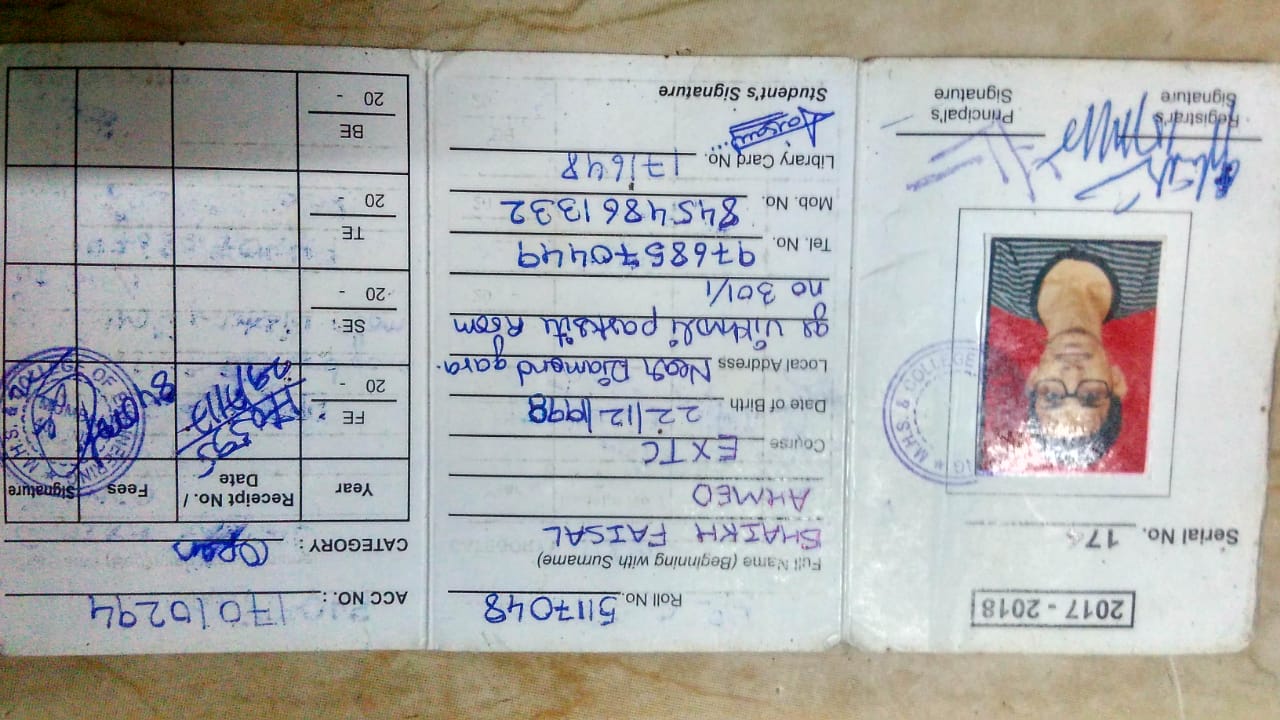 2017 - 2018
Serial No. 17
M.H.S. & COLLEGE
Registrar's Signature
Principal's Signature
Roll No. 5117048
Full Name (Beginning with Surname)
SHAIKH FAISAL
AHMED
Course EXTC
Date of Birth 22/12/1998
Local Address Near Diamond gara.
ge vikhroli parksite Room
no 301/1
Tel. No. 9768570449
Mob. No. 8454861332
Library Card No. 171648
Student's Signature
ACC NO.: 17010294
CATEGORY: Open
Year Receipt No./ Date Fees Signature
FE
20 -
SE
20 -
TE
20 -
BE
20 -
M.H.S. & COLLEGE OF